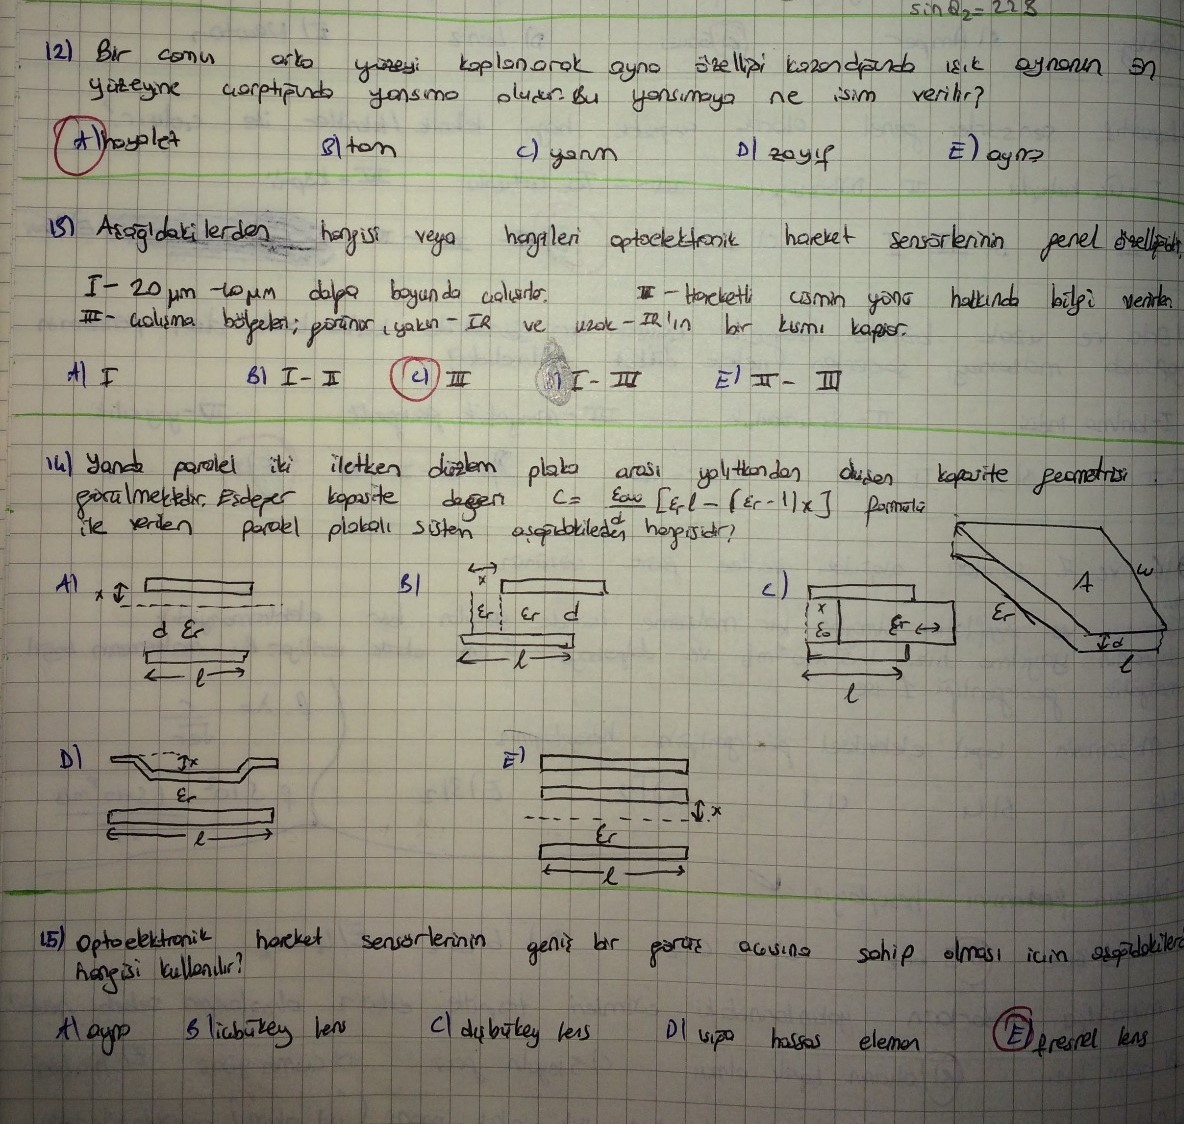 sinθ₂=22,8
12) Bir camın arka yüzeyi kaplanarak ayna özelliği kazandığında ışık aynanın ön
yüzeyine çarptığında yansıma oluşur. Bu yansımaya ne isim verilir?
A) hayalet B) tam C) yarım D) zayıf E) ayna
13) Aşağıdakilerden hangisi veya hangileri optoelektronik hareket sensörlerinin genel özelliğidir
I- 20 μm -10 μm dalga boyunda çalışırlar. II - Hareketli cismin yönü hakkında bilgi verirler.
III- çalışma bölgeleri; görünür, yakın-IR ve uzak-IR'ın bir kısmı kapsar.
A) I B) I-II C) III D) I-III E) II-III
14) Yanda paralel iki iletken düzlem plaka arası yalıtkandan oluşan kapasite geometrisi
görülmektedir. Eşdeğer kapasite değeri C= ε₀w/d [εr l - (εr-1)x] formülü
ile verilen paralel plakalı sistem aşağıdakilerden hangisidir?
A) x d εr l
B) x εr εr d l
C) x ε₀ εr l
A w εr d l
D) x εr l
E) x εr l
15) Optoelektronik hareket sensörlerinin geniş bir görüş açısına sahip olması için
hangisi kullanılır?
A) ayna B) içbükey lens C) dışbükey lens D) ışığa hassas eleman E) fresnel lens